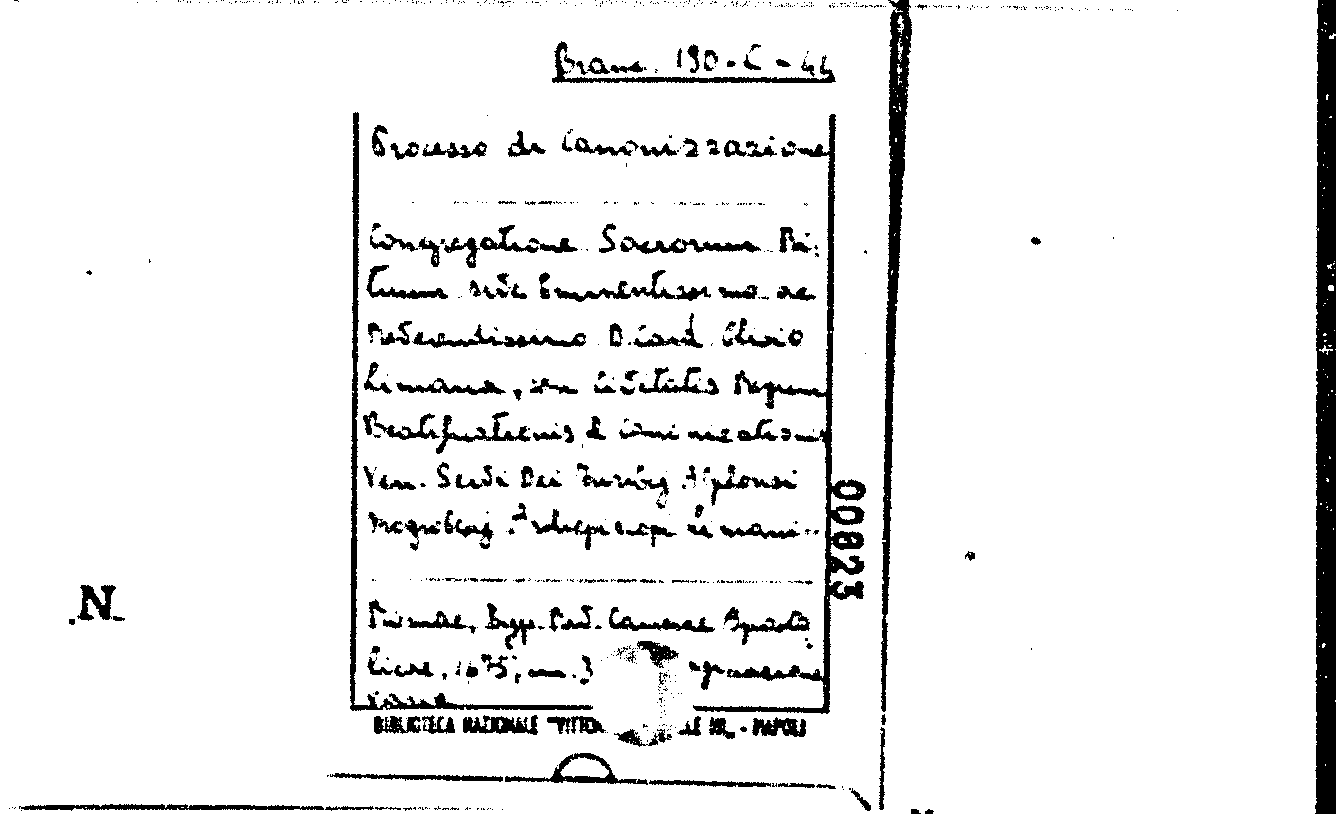 Branc. 130-C-44
Processo di Canonizzazione
Congregatione Sacrorum Ri-
tuum sive Eminentissimo ac
Reverendissimo D. Card.
Limana, seu Civitatis Regum
Beatificationis & Canonizationis
Ven. Servi Dei Turibij Alphonsi
Mogrobesij Archiepiscopi Limani..
00823
N
Romae, Typ. Rev. Camerae Aposto
licae, 1675, in. 3
BIBLIOTECA NAZIONALE "VITTOR LE III„ - NAPOLI